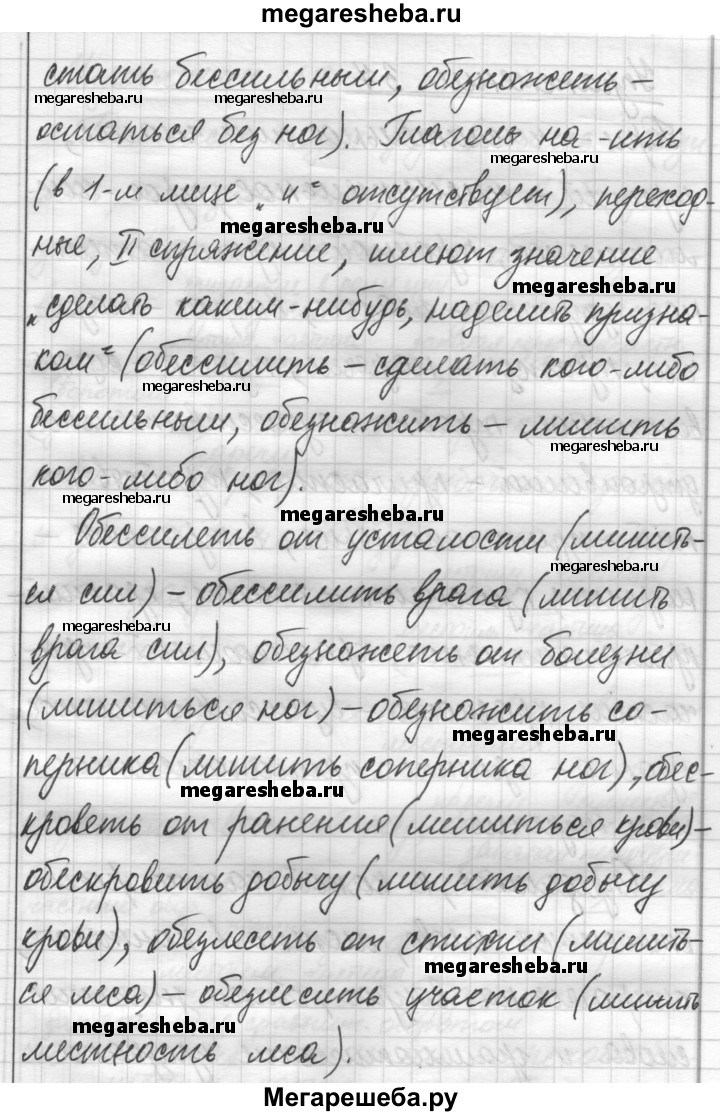 megaresheba.ru
стать бессильным, обезножеть –
megaresheba.ru megaresheba.ru
остаться без ног). Глаголы на -ить
megaresheba.ru
(в 1-м лице „и“ отсутствует), переход-
megaresheba.ru
ные, II спряжение, имеют значение
megaresheba.ru
„сделать каким-нибудь, наделить призна-
ком“ (обессилить – сделать кого-либо
megaresheba.ru
бессильным, обезножить – лишить
megaresheba.ru
кого-либо ног).
megaresheba.ru megaresheba.ru
– Обессилеть от усталости (лишить-
megaresheba.ru
ся сил) – обессилить врага (лишить
megaresheba.ru
врага сил), обезножеть от болезни
(лишиться ног) – обезножить со-
megaresheba.ru
перника (лишить соперника ног), обес-
megaresheba.ru
кроветь от ранения (лишиться крови) –
обескровить добычу (лишить добычу
крови), обезлесеть от стихии (лишить-
megaresheba.ru
ся леса) – обезлесить участок (лишить
megaresheba.ru
местность леса).
Мегарешеба.ру